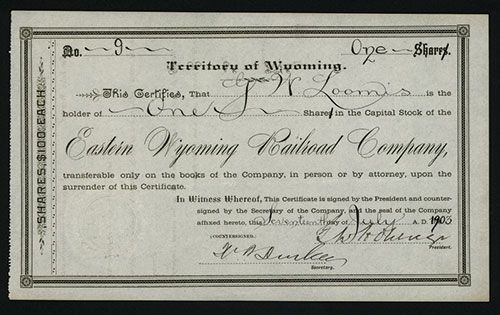 No. 9 One Share.
Territory of Wyoming.
This Certifies, That W Loomis is the
holder of One Share in the Capital Stock of the
Eastern Wyoming Railroad Company,
transferable only on the books of the Company, in person or by attorney, upon the
surrender of this Certificate.
In Witness Whereof, This Certificate is signed by the President and counter-
signed by the Secretary of the Company, and the seal of the Company
affixed hereto, this day of July A.D. 1903
COUNTERSIGNED:
President.
Secretary.
SHARES, $100 EACH.